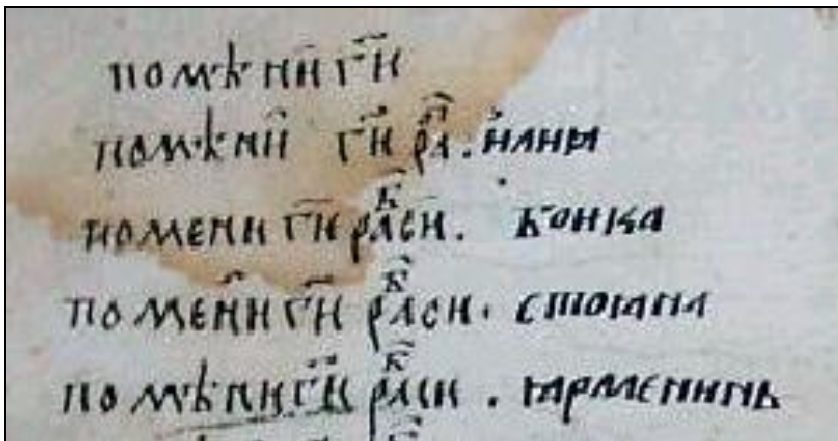 помѣни г҃и
помѣни г҃и раⷠ.
помени г҃и раⷠси. бонка
помени г҃и раⷠси. стоꙗна
помѣни г҃и раⷠси. ꙗрменинь